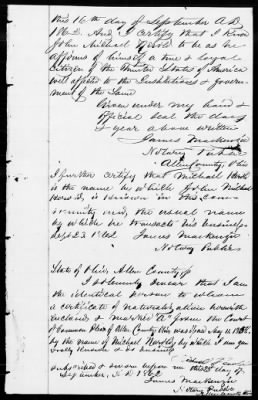 this 16th day of September A.D.
1862. And I certify that I know
John Michael to be as he
affirms of himself a true & loyal
citizen of the United States of America
well affected to the Institutions & Govern-
ment of the Same
Given under my hand &
official seal the day
& year above written
James Mackenzie
Notary Public
Allen County Ohio
I further certify that Michael
is the name by which John Michael
is known in this com-
munity and, the usual name
by which he transacts his business
Sept 23 1862 James Mackenzie
Notary Public
State of Ohio, Allen County ss
I solemnly swear that I am
the identical person to whom
a certificate of naturalization herewith
enclosed & marked "A" from the Court
of Common Pleas of Allen County Ohio was issued May
by the name of Michael by which I am gen-
erally known &
sworn before me this 23 day of
September A.D. 1862
James Mackenzie
Notary Public